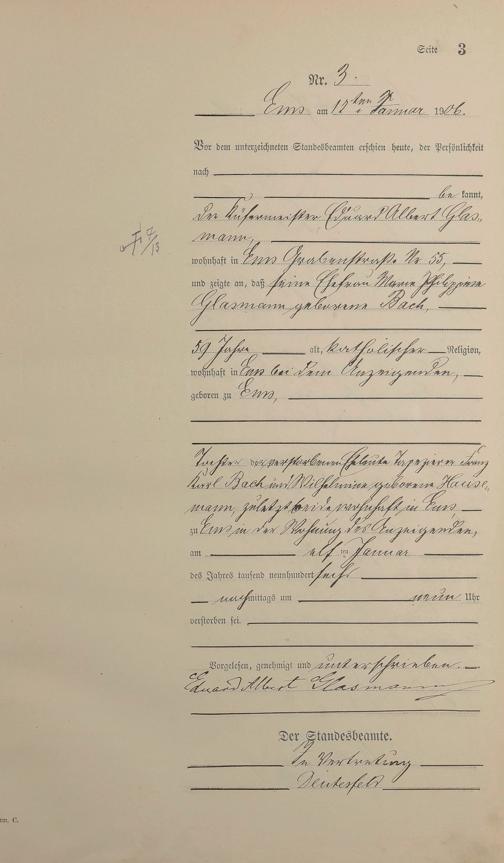 Seite 3
Nr. 3.
Ems am 12ten Januar 1906.
Vor dem unterzeichneten Standesbeamten erschien heute, der Persönlichkeit
nach
be kannt,
der Küfermeister Eduard Albert Glas-
mann,
wohnhaft in Ems Grabenstraße Nr 55,
und zeigte an, daß seine Ehefrau Marie Philippine
Glasmann geborene Bach,
59 Jahre alt, katholischer Religion,
wohnhaft in Ems bei dem Anzeigenden,
geboren zu Ems,
Tochter der verstorbenen Eheleute Tapezierer Franz
Karl Bach und Wilhelmine geborene Hause-
mann, zuletzt beide wohnhaft in Ems,
zu Ems in der Wohnung des Anzeigenden,
am elf ten Januar
des Jahres tausend neunhundert sechs
nachmittags um neun Uhr
verstorben sei.
Vorgelesen, genehmigt und unterschrieben.
Eduard Albert Glasmann
Der Standesbeamte.
In Vertretung